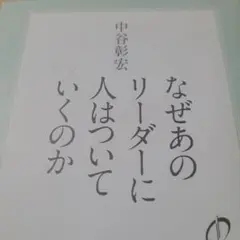 なぜあの
リーダーに
人はついて
いくのか
中谷彰宏